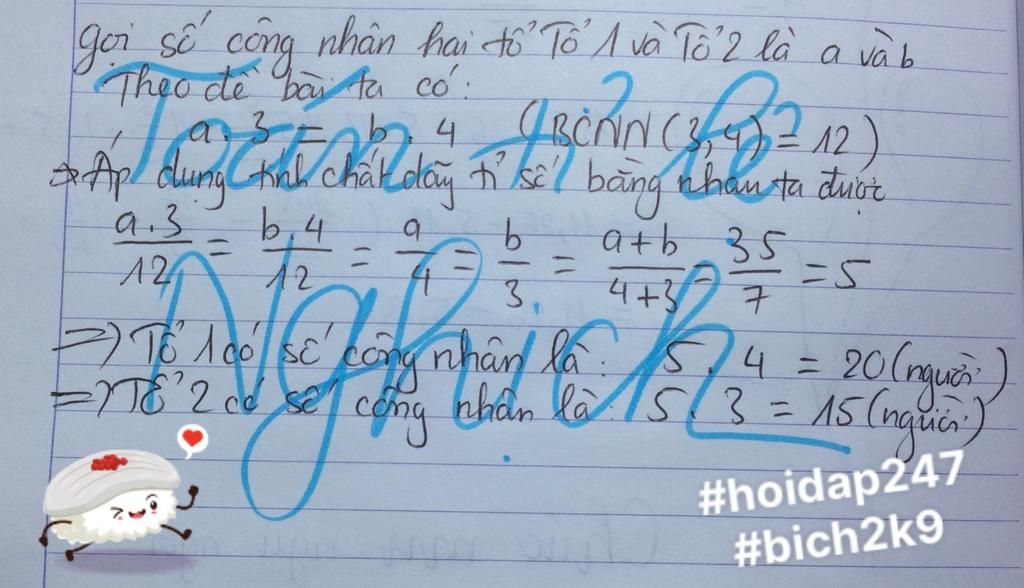 gọi số công nhân hai tổ Tổ 1 và Tổ 2 là a và b
Theo đề bài ta có:
a.3 = b.4 (BCNN(3,4) = 12)
⇒ Áp dụng tính chất dãy tỉ số bằng nhau ta được
a.3/12 = b.4/12 = a/4 = b/3 = a+b/4+3 = 35/7 = 5
=) Tổ 1 có số công nhân là: 5.4 = 20 (người)
=) Tổ 2 có số công nhân là: 5.3 = 15 (người)
Toán tỉ lệ
Nghịch
#hoidap247
#bich2k9